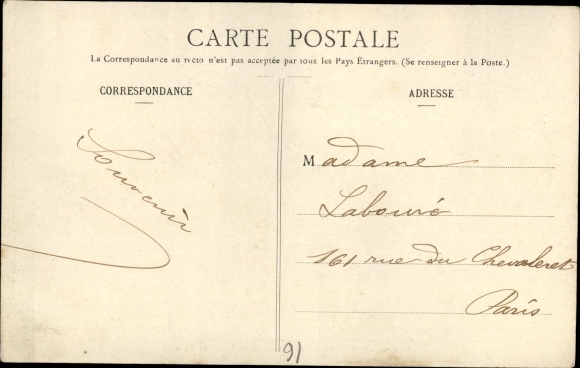 CARTE POSTALE
La Correspondance au recto n'est pas acceptée par tous les Pays Étrangers. (Se renseigner à la Poste.)
CORRESPONDANCE
Souvenir
ADRESSE
Madame
Labouré
161 rue du Chevaleret
Paris
91